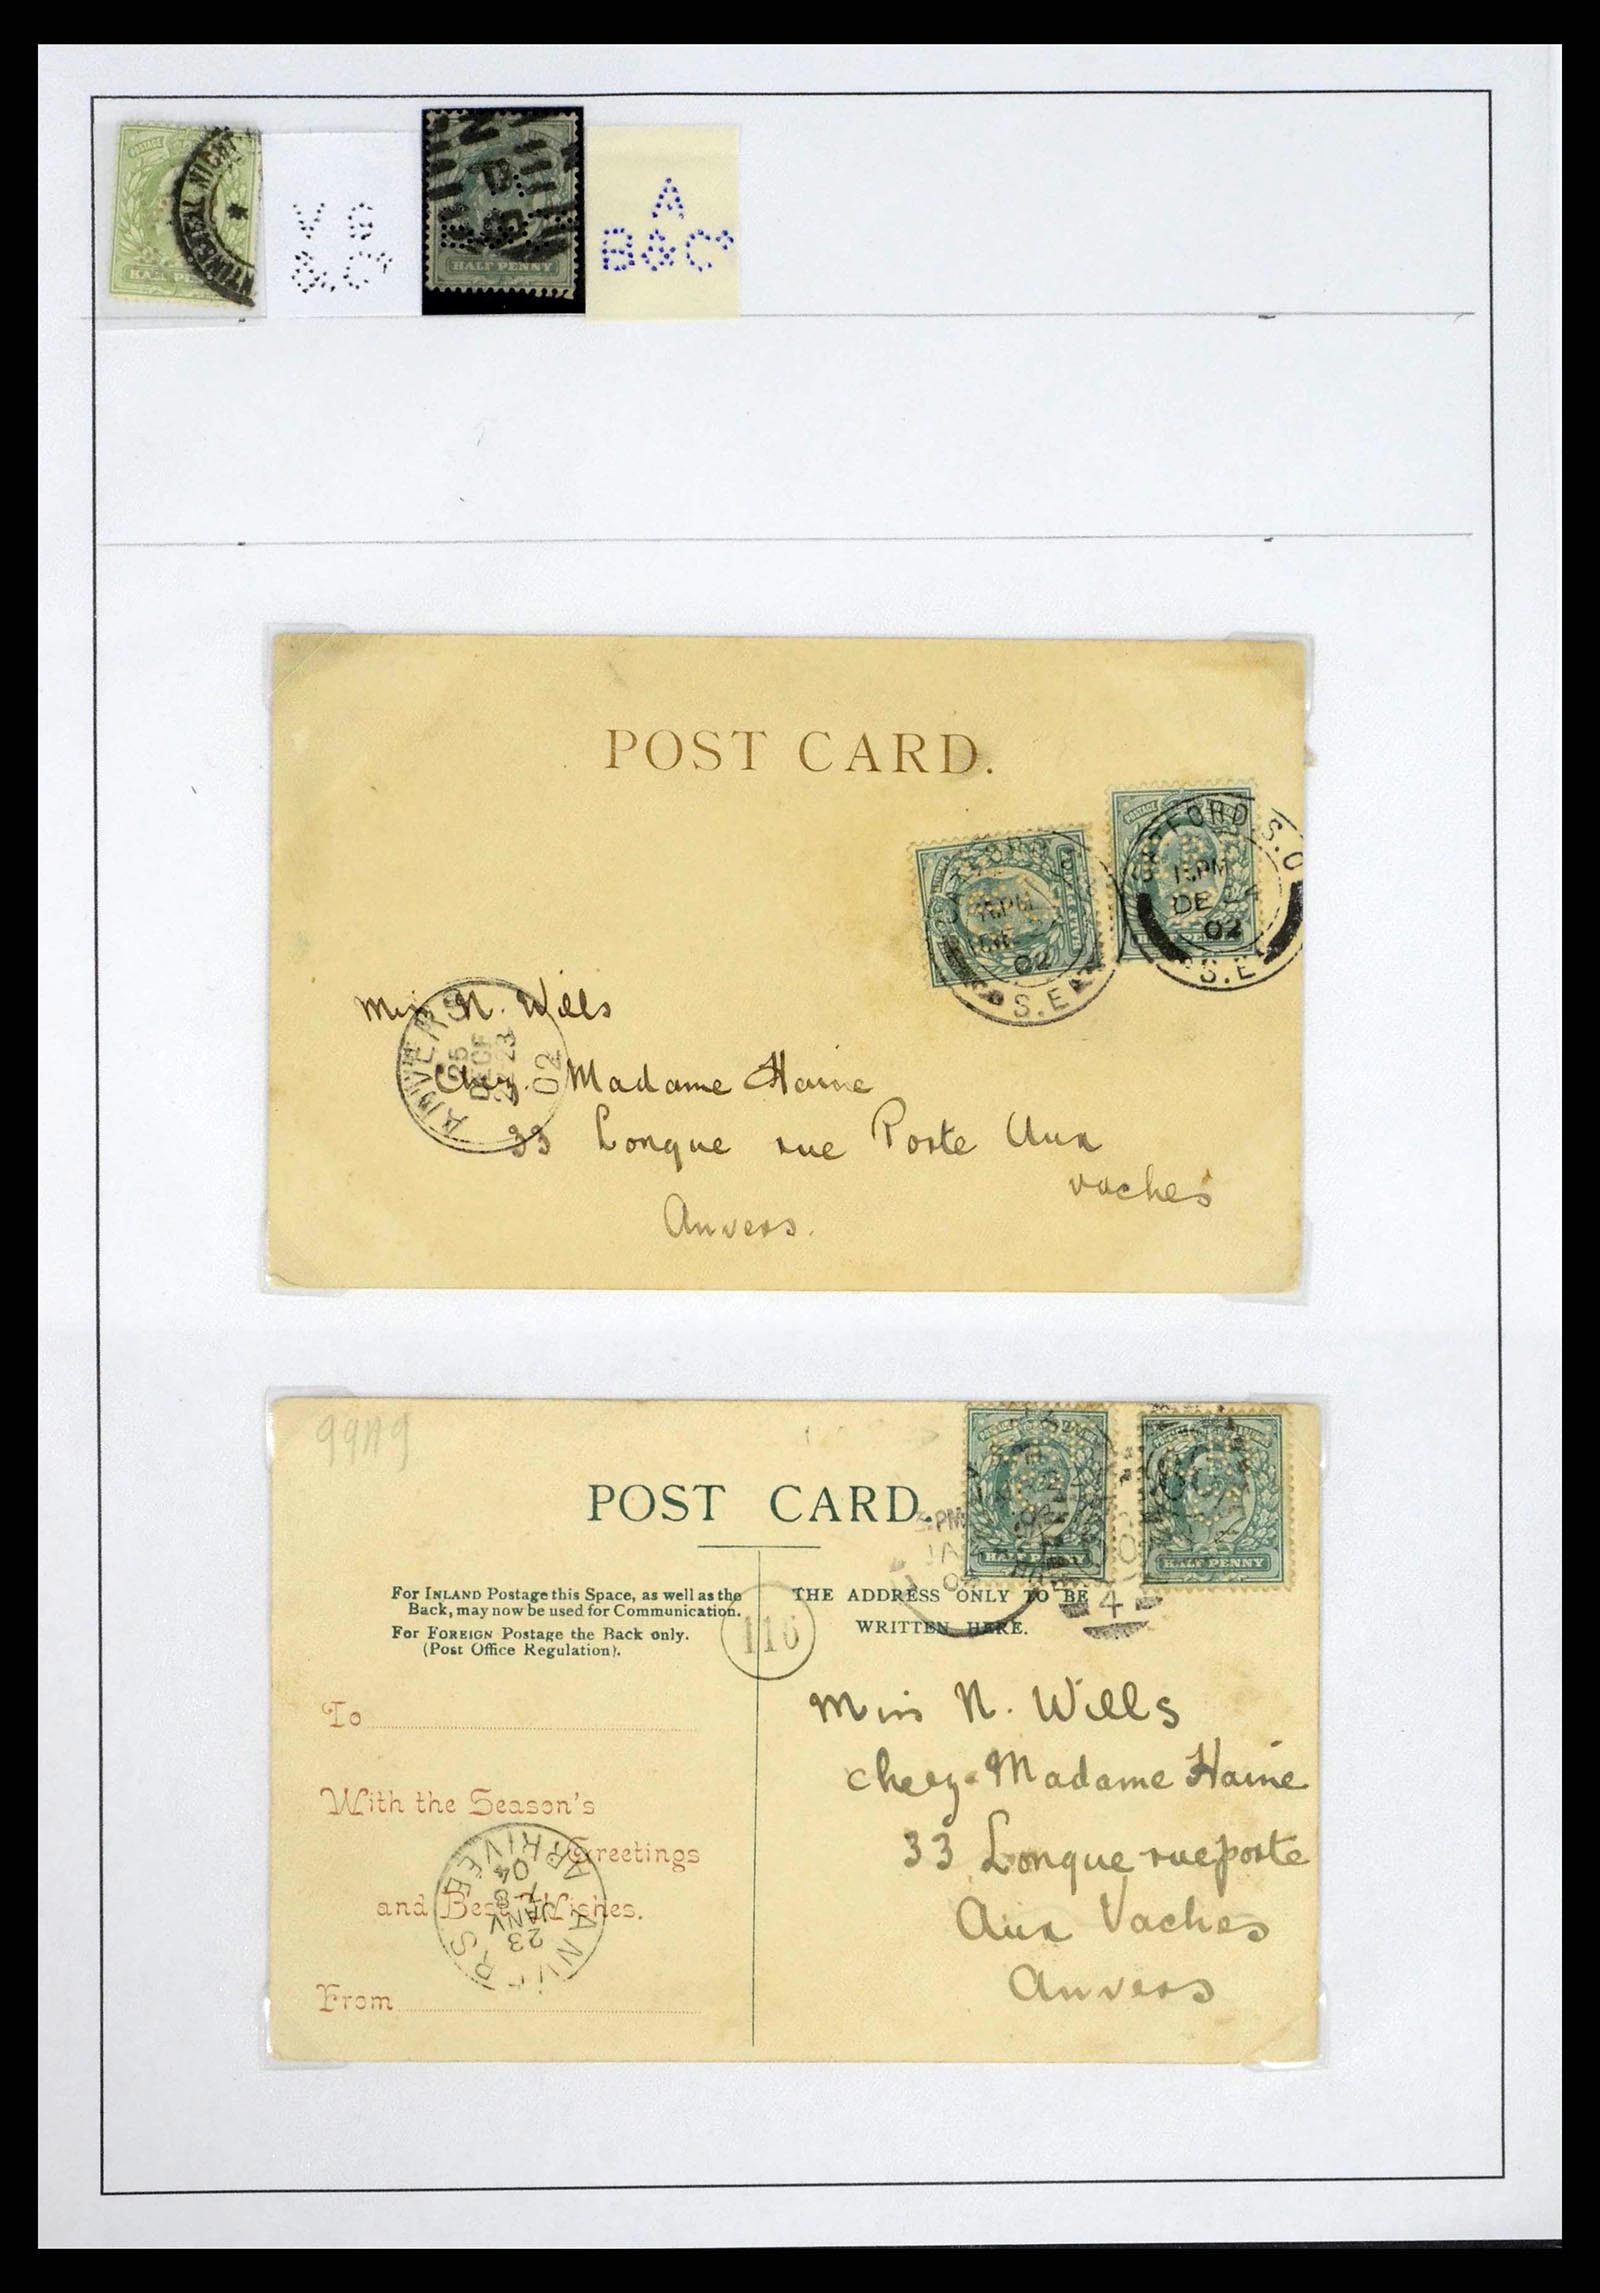 POSTAGE
NIGHT
HALF PENNY
V G
& Cº
HALF PENNY
A
B&Cº
POST CARD.
POSTAGE
S.O
PM
DE 24
02
S.E
PM
02
S.E
Miss N. Wills
Chez. Madame Haine
33 Longue rue Poste Aux
vaches
Anvers.
ANVERS
25
DECE
23
02
POST CARD.
HALF PENNY
HALF PENNY
PM
JA
4
For INLAND Postage this Space, as well as the
Back, may now be used for Communication.
For FOREIGN Postage the Back only.
(Post Office Regulation).
116
THE ADDRESS ONLY TO BE
WRITTEN HERE.
To
With the Season's
Greetings
and Best Wishes.
From
ANVERS
23
JANV
04
ARRIVEE
Miss N. Wills
chez - Madame Haine
33 Longue rue poste
Aux Vaches
Anvers